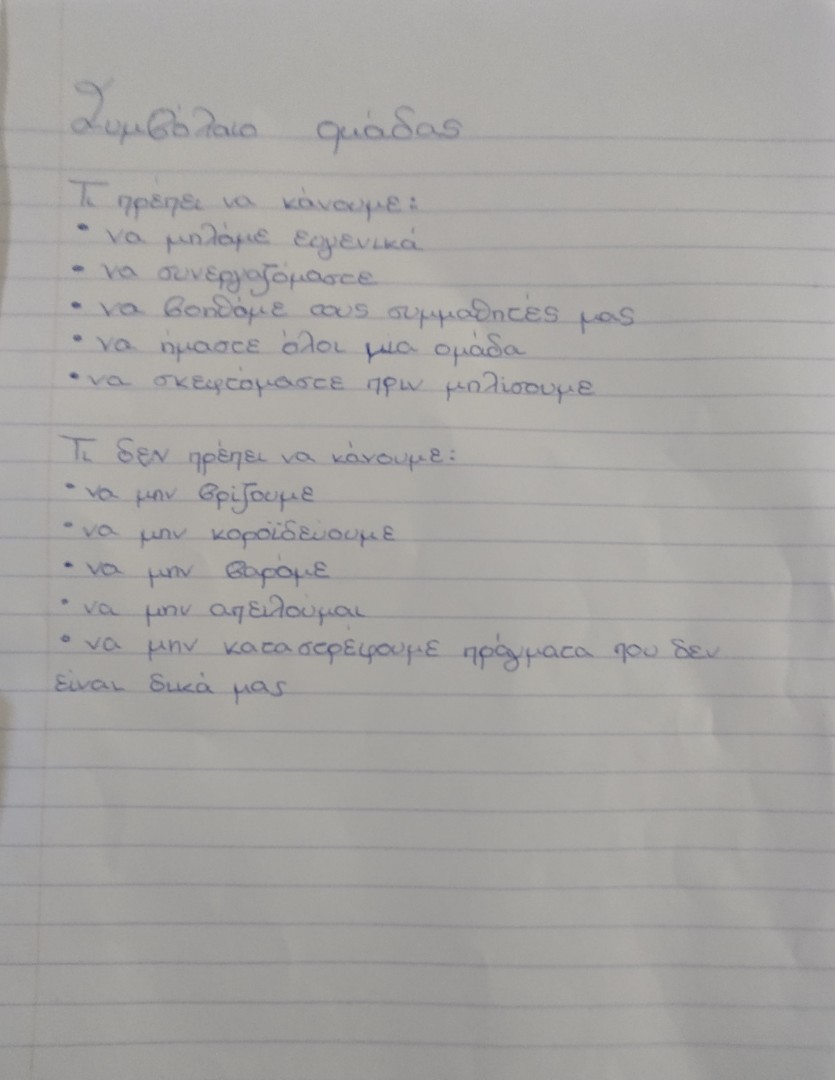 Συμβόλαιο ομάδας
Τι πρέπει να κάνουμε:
• να μηλάμε ευγενικά
• να συνεργαζόμαστε
• να βοηθάμε τους συμμαθητές μας
• να ήμαστε όλοι μια ομάδα
• να σκεφτόμαστε πριν μηλίσουμε
Τι δεν πρέπει να κάνουμε:
• να μην βρίζουμε
• να μην κοροϊδεύουμε
• να μην βαράμε
• να μην απειλούμαι
• να μην καταστρέφουμε πράγματα που δεν
είναι δικά μας